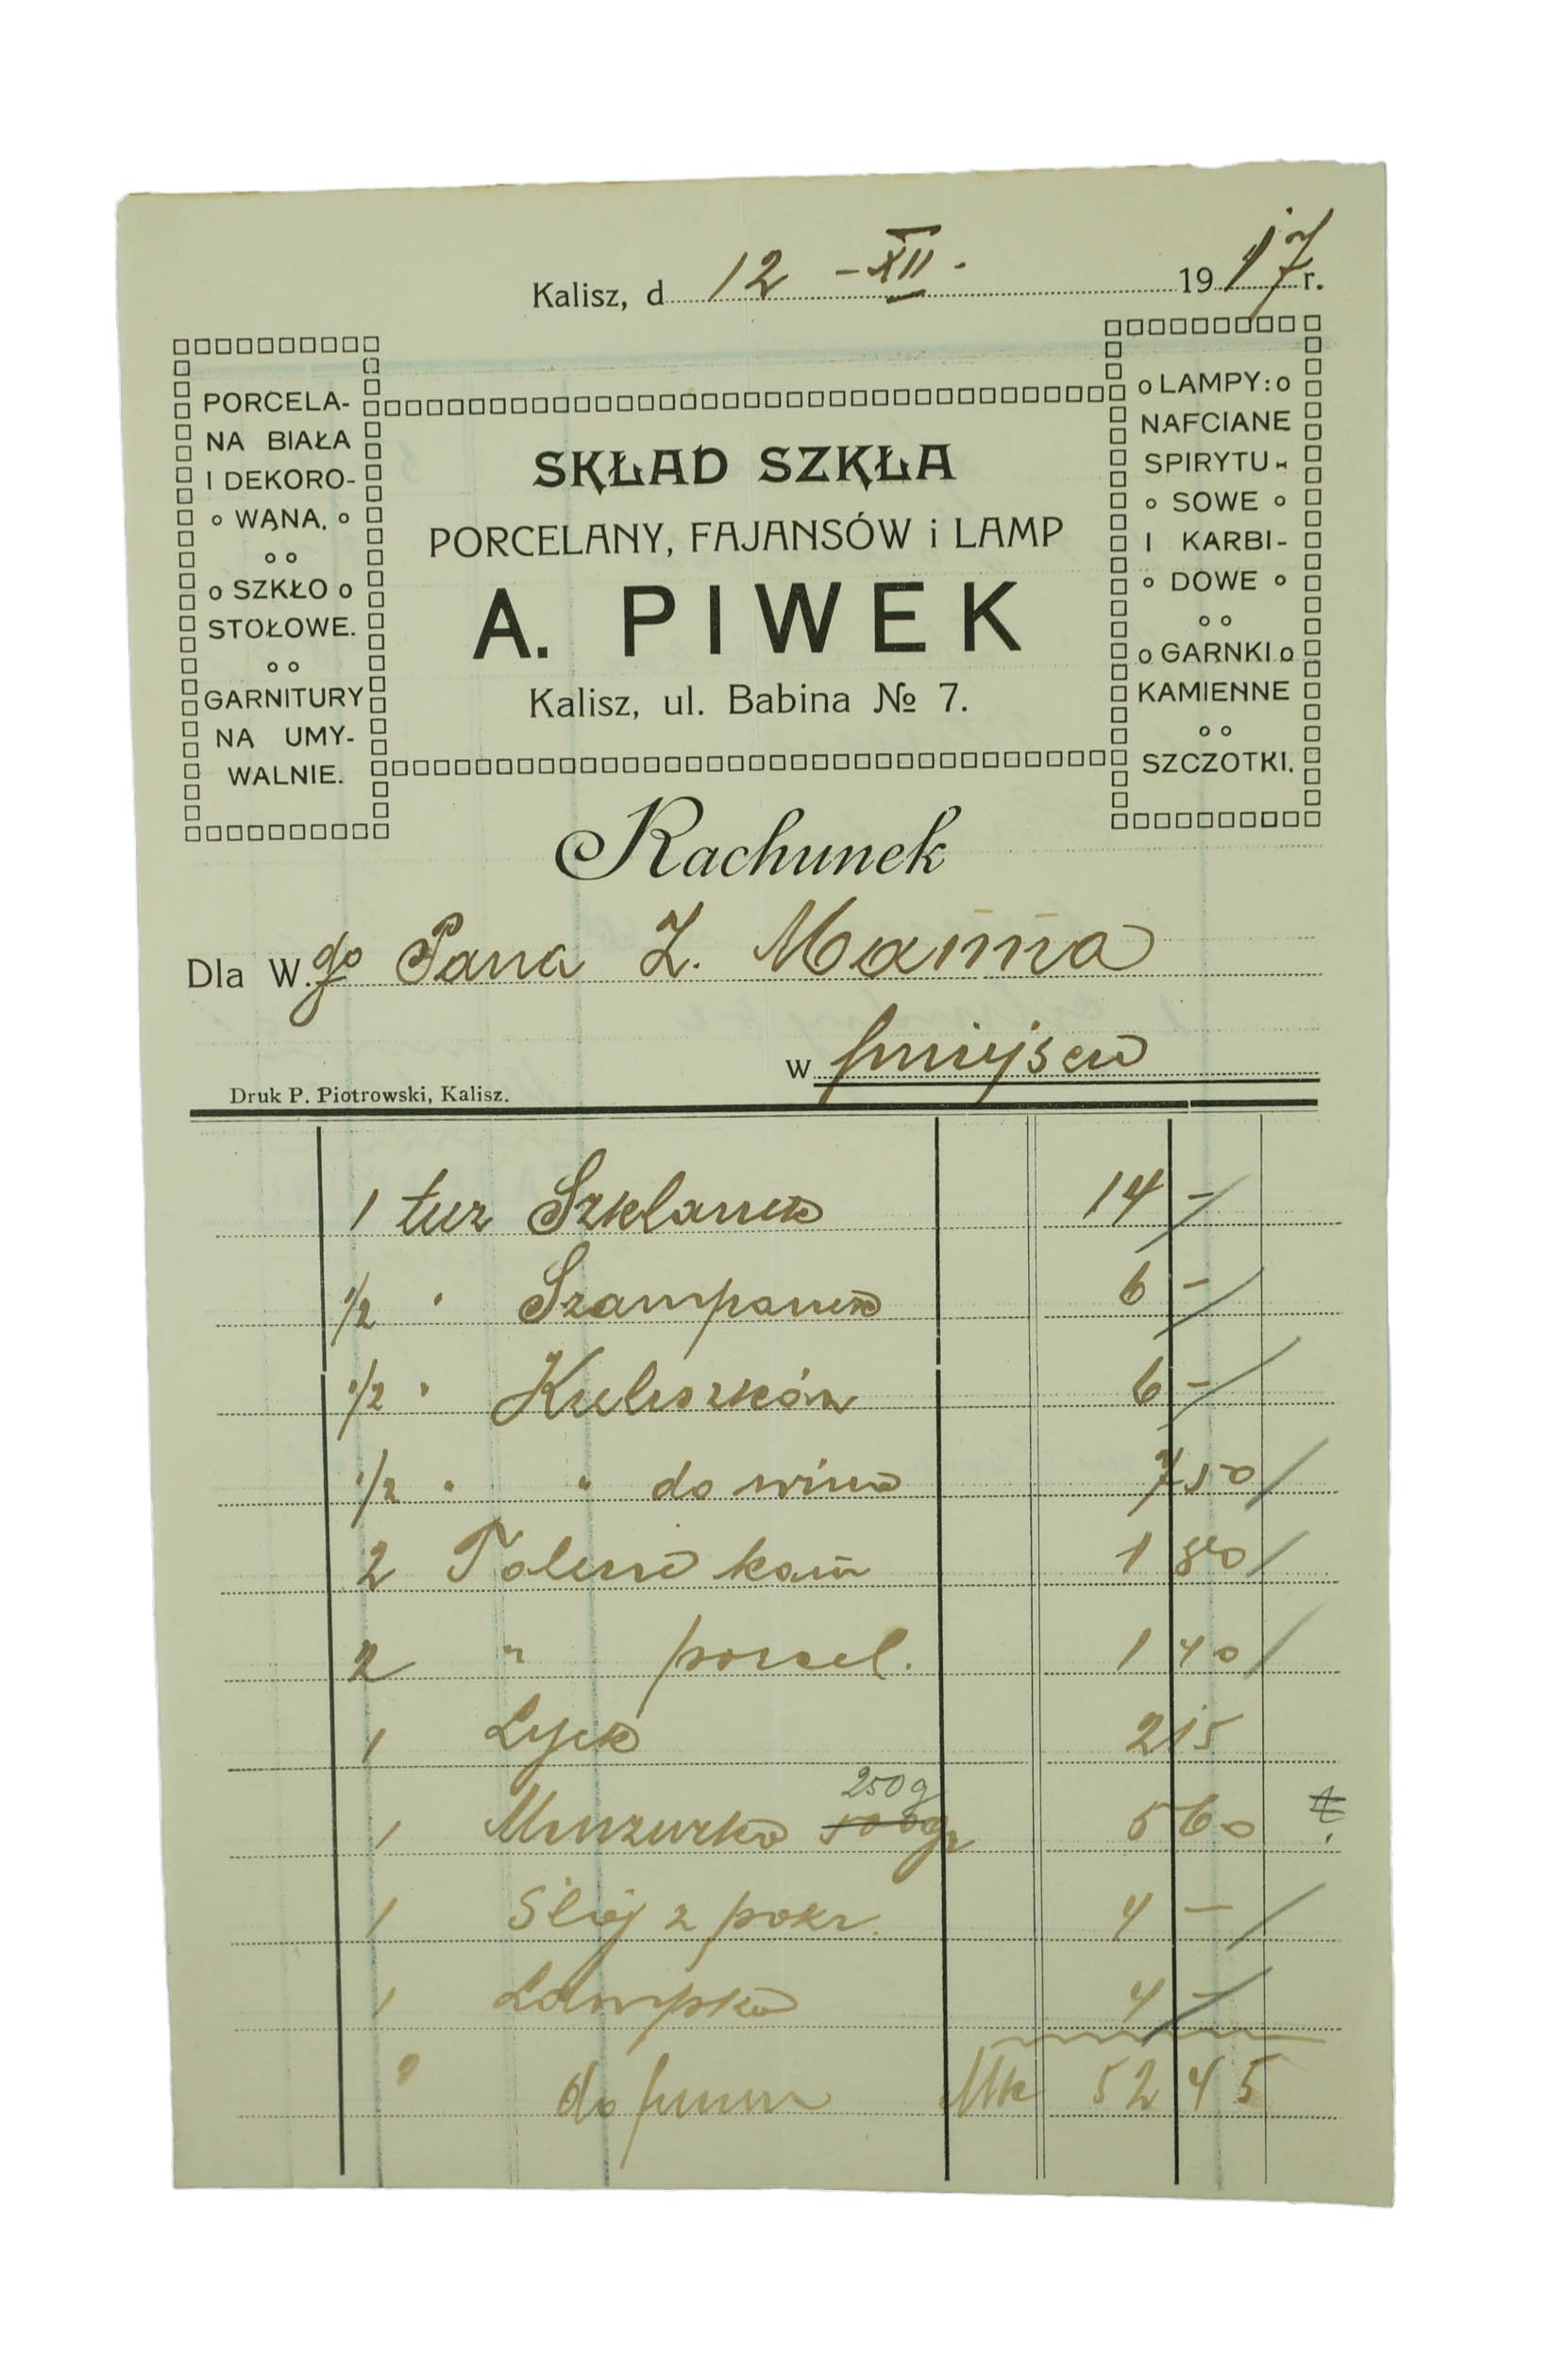 Kalisz, d 12 – XII. 1917 r.
PORCELA-
NA BIAŁA
I DEKORO-
WANA.
SZKŁO
STOŁOWE.
GARNITURY
NA UMY-
WALNIE.
SKŁAD SZKŁA
PORCELANY, FAJANSÓW i LAMP
A. PIWEK
Kalisz, ul. Babina № 7.
LAMPY:
NAFCIANE
SPIRYTU-
SOWE
I KARBI-
DOWE
GARNKI
KAMIENNE
SZCZOTKI.
Rachunek
Dla W.go Pana Z. Manna
w miejscu
Druk P. Piotrowski, Kalisz.
1 tuz Szklanek 14 –
1/2 " Szampanek 6 –
1/2 " Kieliszków 6 –
1/2 " " do wina 7 50
2 kam 1 80
2 " porcel. 1 40
1 2 15
250 g
1 500gr 5 60
1 Słój z pokr. 4 –
1 Lampka 4 –
Mk 52 45